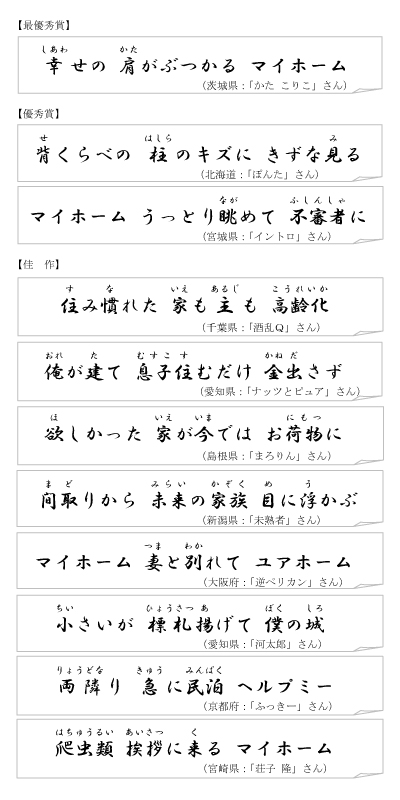 【最優秀賞】
しあわ かた
幸せの 肩がぶつかる マイホーム
（茨城県：「かた こりこ」さん）
【優秀賞】
せ はしら み
背くらべの 柱のキズに きずな見る
（北海道：「ぽんた」さん）
なが ふしんしゃ
マイホーム うっとり眺めて 不審者に
（宮城県：「イントロ」さん）
【佳 作】
す な いえ あるじ こうれいか
住み慣れた 家も 主も 高齢化
（千葉県：「酒乱Q」さん）
おれ た むすこ す かね だ
俺が建て 息子住むだけ 金出さず
（愛知県：「ナッツとピュア」さん）
ほ いえ いま にもつ
欲しかった 家が今では お荷物に
（島根県：「まろりん」さん）
まど みらい かぞく め う
間取りから 未来の家族 目に浮かぶ
（新潟県：「未熟者」さん）
つま わか
マイホーム 妻と別れて ユアホーム
（大阪府：「逆ペリカン」さん）
ちい ひょうさつ あ ぼく しろ
小さいが 標札揚げて 僕の城
（愛知県：「河太郎」さん）
りょうどな きゅう みんぱく
両隣り 急に民泊 ヘルプミー
（京都府：「ふっきー」さん）
はちゅうるい あいさつ く
爬虫類 挨拶に来る マイホーム
（宮崎県：「荘子 隆」さん）